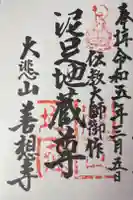 奉拝令和五年三月五日
伝教大師御作
泥足地蔵尊
大悲山
善想寺